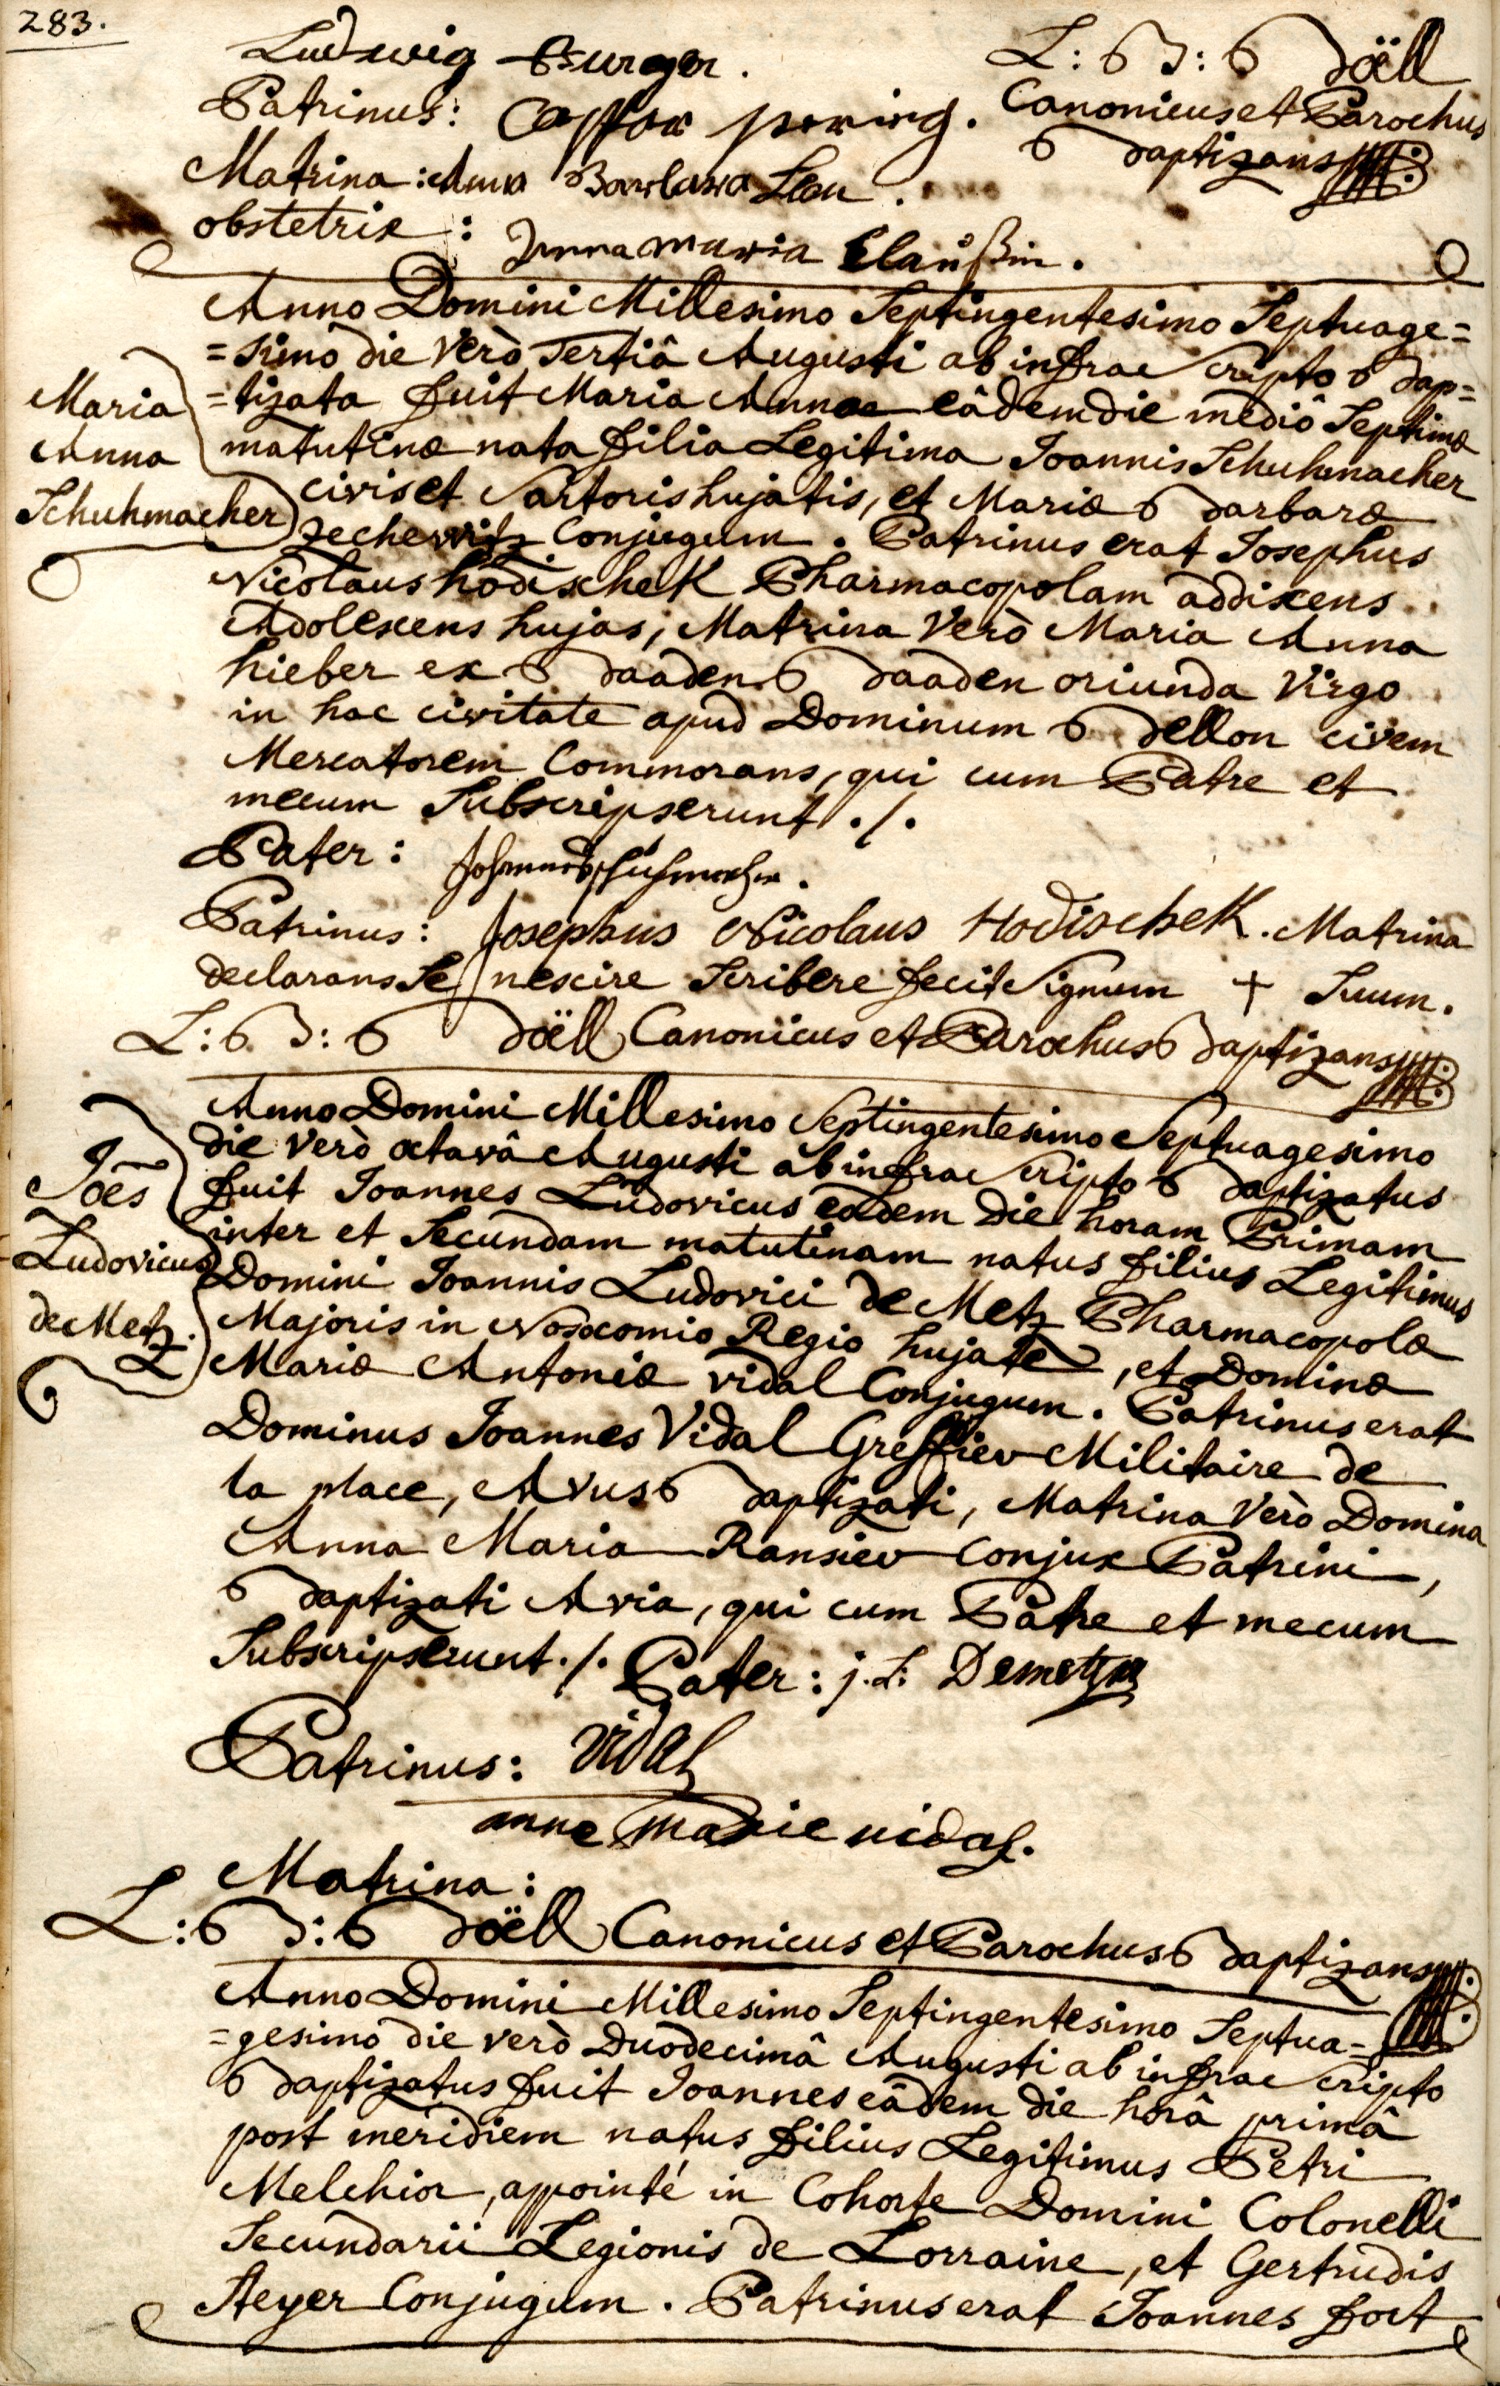 283.
Ludwig Burger.
L: B: Böell
Patrinus: Casper
Canonicus et Parochus
Baptizans
Matrina: Anna Barbara
obstetrix: Anna maria Claußin.
Anno Domini Millesimo Septingentesimo Septuage=
=simo die Verò Tertiâ Augusti ab infrascripto Bap=
=tizata fuit Maria Anna eâdem die mediô Septimæ
matutinæ nata filia Legitima Joannis Schuhmacher
civis et Sartoris hujatis, et Mariæ Barbaræ
Conjugum. Patrinus erat Josephus
Nicolaus hodischek Pharmacopolam addiscens
Adolescens hujas; Matrina Verò Maria Anna
hieber ex Baaden Baaden oriunda Virgo
in hac civitate apud Dominum Bellon civem
Mercatorem Commorans, qui cum Patre et
mecum Subscripserunt ./.
Maria
Anna
Schuhmacher
Pater: Johannes schuhmacher.
Patrinus: Josephus Nicolaus Hodischek. Matrina
declarans Se nescire Scribere fecit Signum + Suum.
L: B: Böell Canonicus et Parochus Baptizans
Anno Domini Millesimo Septingentesimo Septuagesimo
die Verò octavâ Augusti ab infrascripto Baptizatus
fuit Joannes Ludovicus eâdem die horam Primam
inter et Secundam matutinam natus filius Legitimus
Domini Joannis Ludovici de Metz Pharmacopolæ
Majoris in Nosocomio Regio hujate, et Dominæ
Mariæ Antoniæ vidal Conjugum. Patrinus erat
Dominus Joannes Vidal Greffier Militaire de
la place, Avus Baptizati, Matrina Verò Domina
Anna Maria Ransier conjux Patrini,
Baptizati Avia, qui cum Patre et mecum
Subscripserunt ./. Pater: j. L: Demetz
Joes
Ludovicus
de Metz.
Patrinus: vidal
anne Marie vidal.
Matrina:
L: B: Böell Canonicus et Parochus Baptizans
Anno Domini Millesimo Septingentesimo Septua=
=gesimo die verò Duodecimâ Augusti ab infrascripto
Baptizatus fuit Joannes eâdem die horâ primâ
post meridiem natus filius Legitimus Petri
Melchior, appointé in Cohorte Domini Colonelli
Secundarii Legionis de Lorraine, et Gertrudis
Steyer Conjugum. Patrinus erat Joannes fort